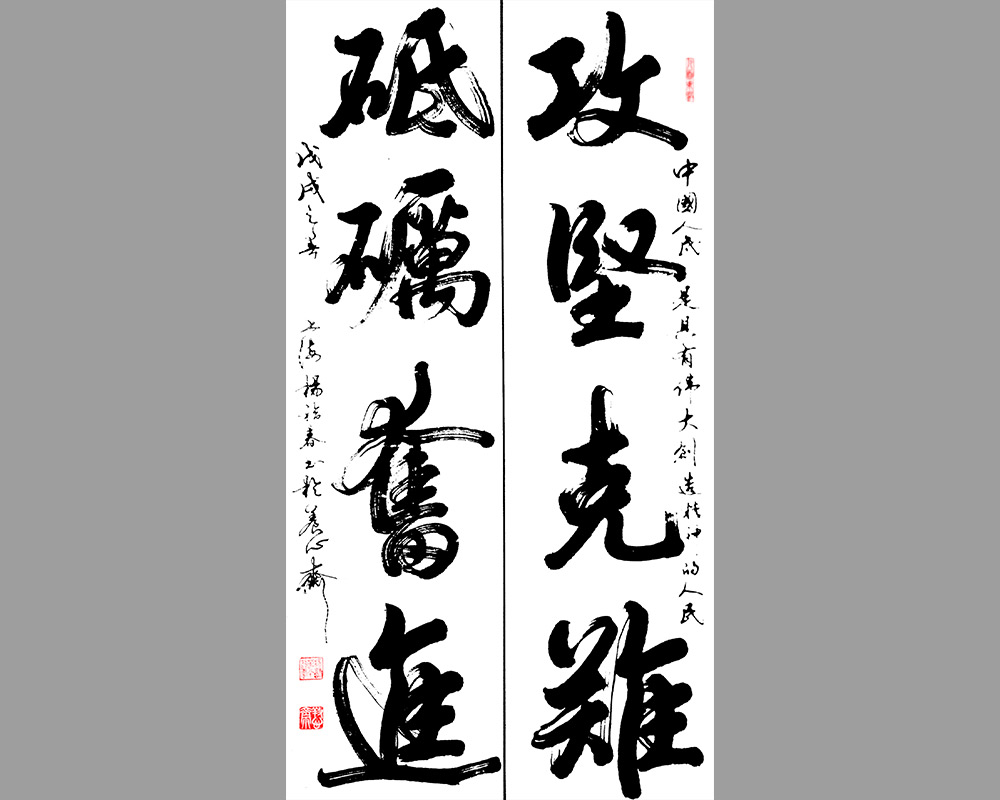 中國人民是具有偉大創造精神的人民
攻堅克難
砥礪奮進
戊戌之春
上海楊詒春書於養心齋